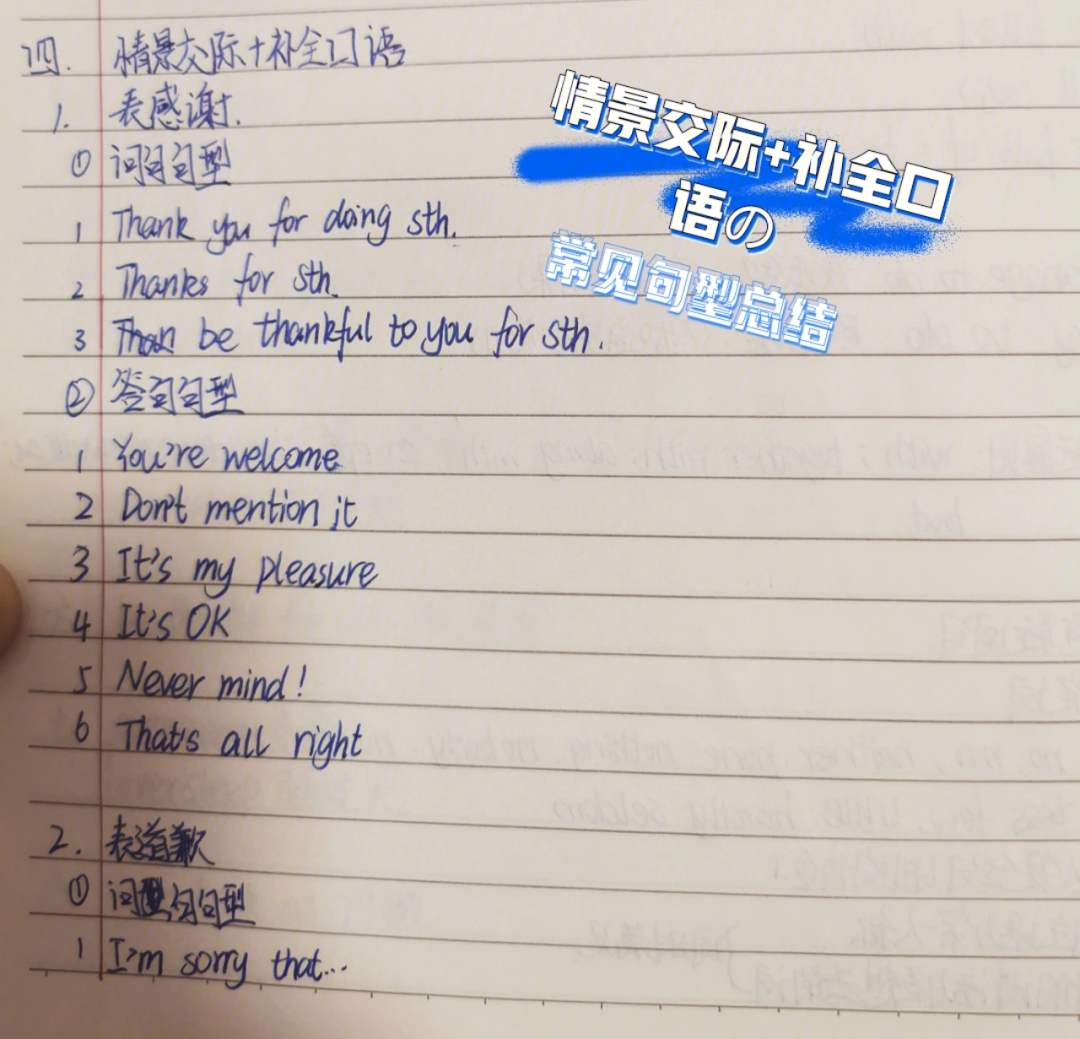 四. 情景交际+补全口语
1. 表感谢.
① 问句句型
1 Thank you for doing sth.
2 Thanks for sth.
3 Than be thankful to you for sth.
② 答句句型
1 You're welcome
2 Don't mention it
3 It's my pleasure
4 It's OK
5 Never mind!
6 That's all right
2. 表道歉
① 问句句型
1 I'm sorry that...
情景交际+补全口
语の
常见句型总结